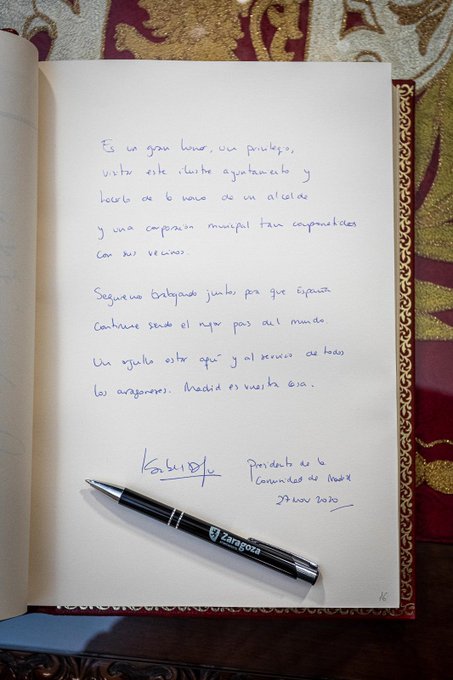 Es un gran honor, un privilegio,
visitar este ilustre ayuntamiento y
hacerlo de la mano de un alcalde
y una corporación municipal tan comprometidos
con sus vecinos.
Seguiremos trabajando juntos para que España
continúe siendo el mejor país del mundo.
Un orgullo estar aquí y al servicio de todos
los aragoneses. Madrid es vuestra casa.
Presidenta de la
Comunidad de Madrid
27 nov 2020
Zaragoza
16